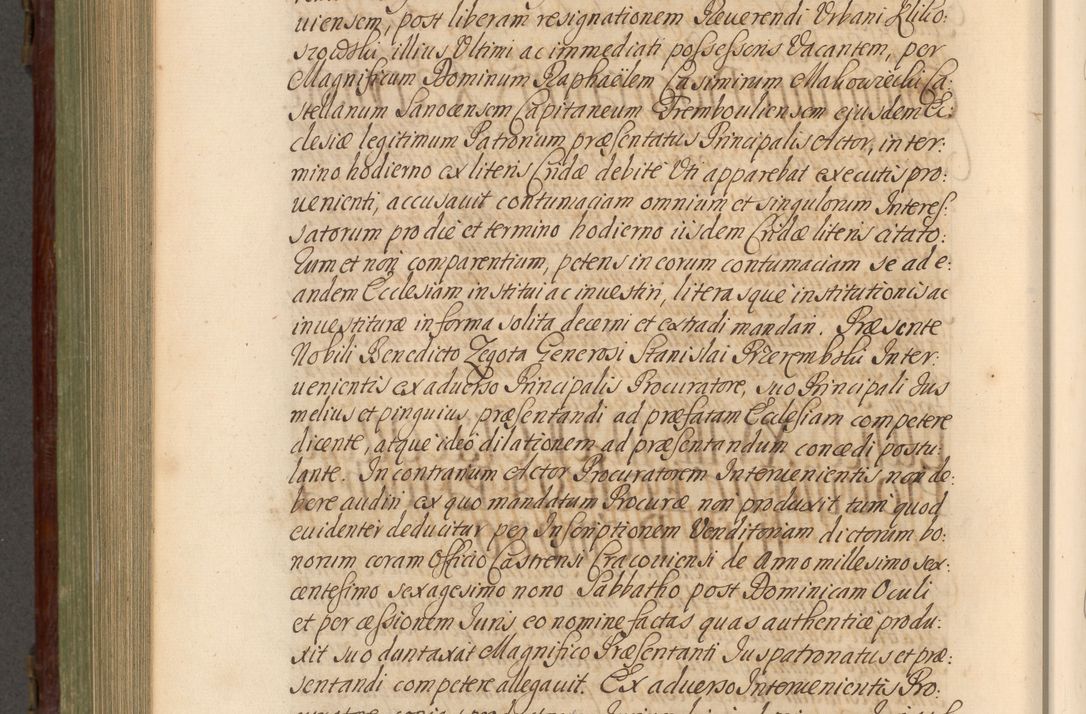 uiensem, post liberam resignationem Reuerendi Urbani
illius Ultimi ac immediati possessoris Vacantem, per
Magnificum Dominum Raphaëlem Casimirum Makowiecki Ca:
stellanum Sanocensem Capitaneum Trembouliensem ejusdem Ec:
clesiæ legitimum Patronum præsentatus Principalis Actor, in ter:
mino hodierno ex literis Cridæ debite Uti apparebat executis pro:
uenienti, accusauit contumaciam omnium et singulorum Interes:
satorum pro die et termino hodierno iisdem Cridæ literis citato:
rum et non comparentium, petens in eorum contumaciam se ad e:
andem Ecclesiam institui ac inuestiri, literasque institutionis ac
inuestituræ in forma solita decerni et extradi mandari. Præsente
Nobili Benedicto Zegota Generosi Stanislai Przerembski Inter:
uenientis ex aduerso Principalis Procuratore, suo Principali Jus
melius et pinguius præsentandi ad præfatam Ecclesiam competere
dicente, atque ideo dilationem ad præsentandum concedi postu:
lante. In contrarium Actor Procuratorem Interuenientis non de:
bere audiri ex quo mandatum Procuræ non produxit, tum quod
euidenter deducitur per Inscriptionem Venditoriam dictorum bo:
norum coram Officio Castrensi Cracouiensi de Anno millesimo sex:
centesimo sexagesimo nono Sabbatho post Dominicam Oculi
et per cessionem Juris eo nomine factas quas authentice produ:
xit suo duntaxat Magnifico Præsentanti Juspatronatus et præ:
sentandi competere allegauit. Ex aduerso Interuenientis Pro: